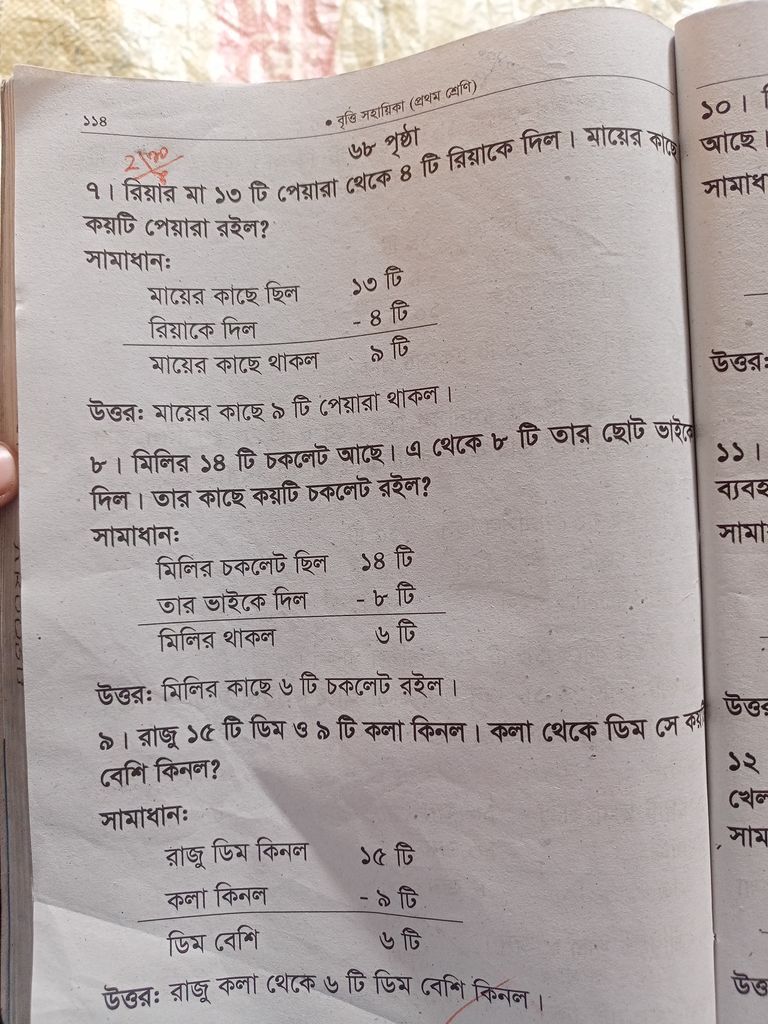 ১১৪
• বৃত্তি সহায়িকা (প্রথম শ্রেণি)
৬৮ পৃষ্ঠা
৭। রিয়ার মা ১৩ টি পেয়ারা থেকে ৪ টি রিয়াকে দিল। মায়ের কাছে
কয়টি পেয়ারা রইল?
সামাধান:
মায়ের কাছে ছিল ১৩ টি
রিয়াকে দিল - ৪ টি
মায়ের কাছে থাকল ৯ টি
উত্তর: মায়ের কাছে ৯ টি পেয়ারা থাকল।
৮। মিলির ১৪ টি চকলেট আছে। এ থেকে ৮ টি তার ছোট ভাইকে
দিল। তার কাছে কয়টি চকলেট রইল?
সামাধান:
মিলির চকলেট ছিল ১৪ টি
তার ভাইকে দিল - ৮ টি
মিলির থাকল ৬ টি
উত্তর: মিলির কাছে ৬ টি চকলেট রইল।
৯। রাজু ১৫ টি ডিম ও ৯ টি কলা কিনল। কলা থেকে ডিম সে
বেশি কিনল?
সামাধান:
রাজু ডিম কিনল ১৫ টি
কলা কিনল - ৯ টি
ডিম বেশি ৬ টি
উত্তর: রাজু কলা থেকে ৬ টি ডিম বেশি কিনল।
১০।
আছে।
উত্তর:
১১।
১২